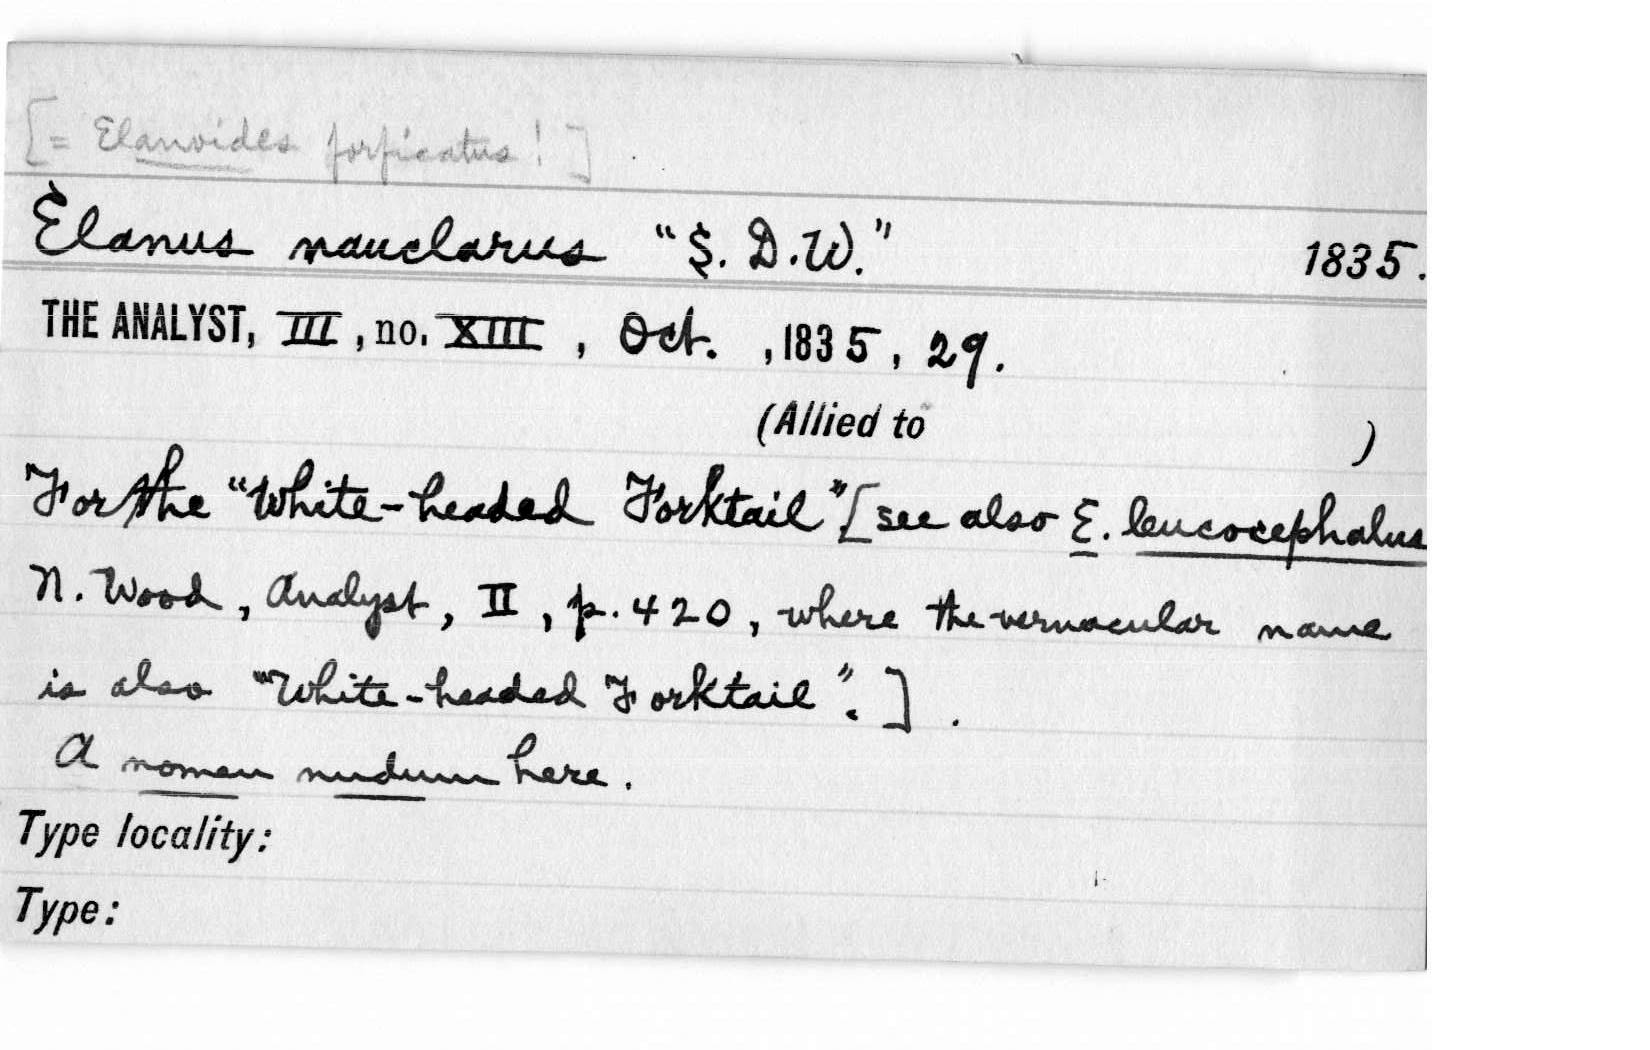 [= Elanoides forficatus! ]
Elanus nauclarus "S. D. W." 1835.
THE ANALYST, III, no. XIII, Oct., 1835, 29.
(Allied to )
For the "White-headed Forktail" [see also E. leucocephalus
N. Wood, Analyst, II, p. 420, where the vernacular name
is also "White-headed Forktail".].
A nomen nudum here.
Type locality:
Type: